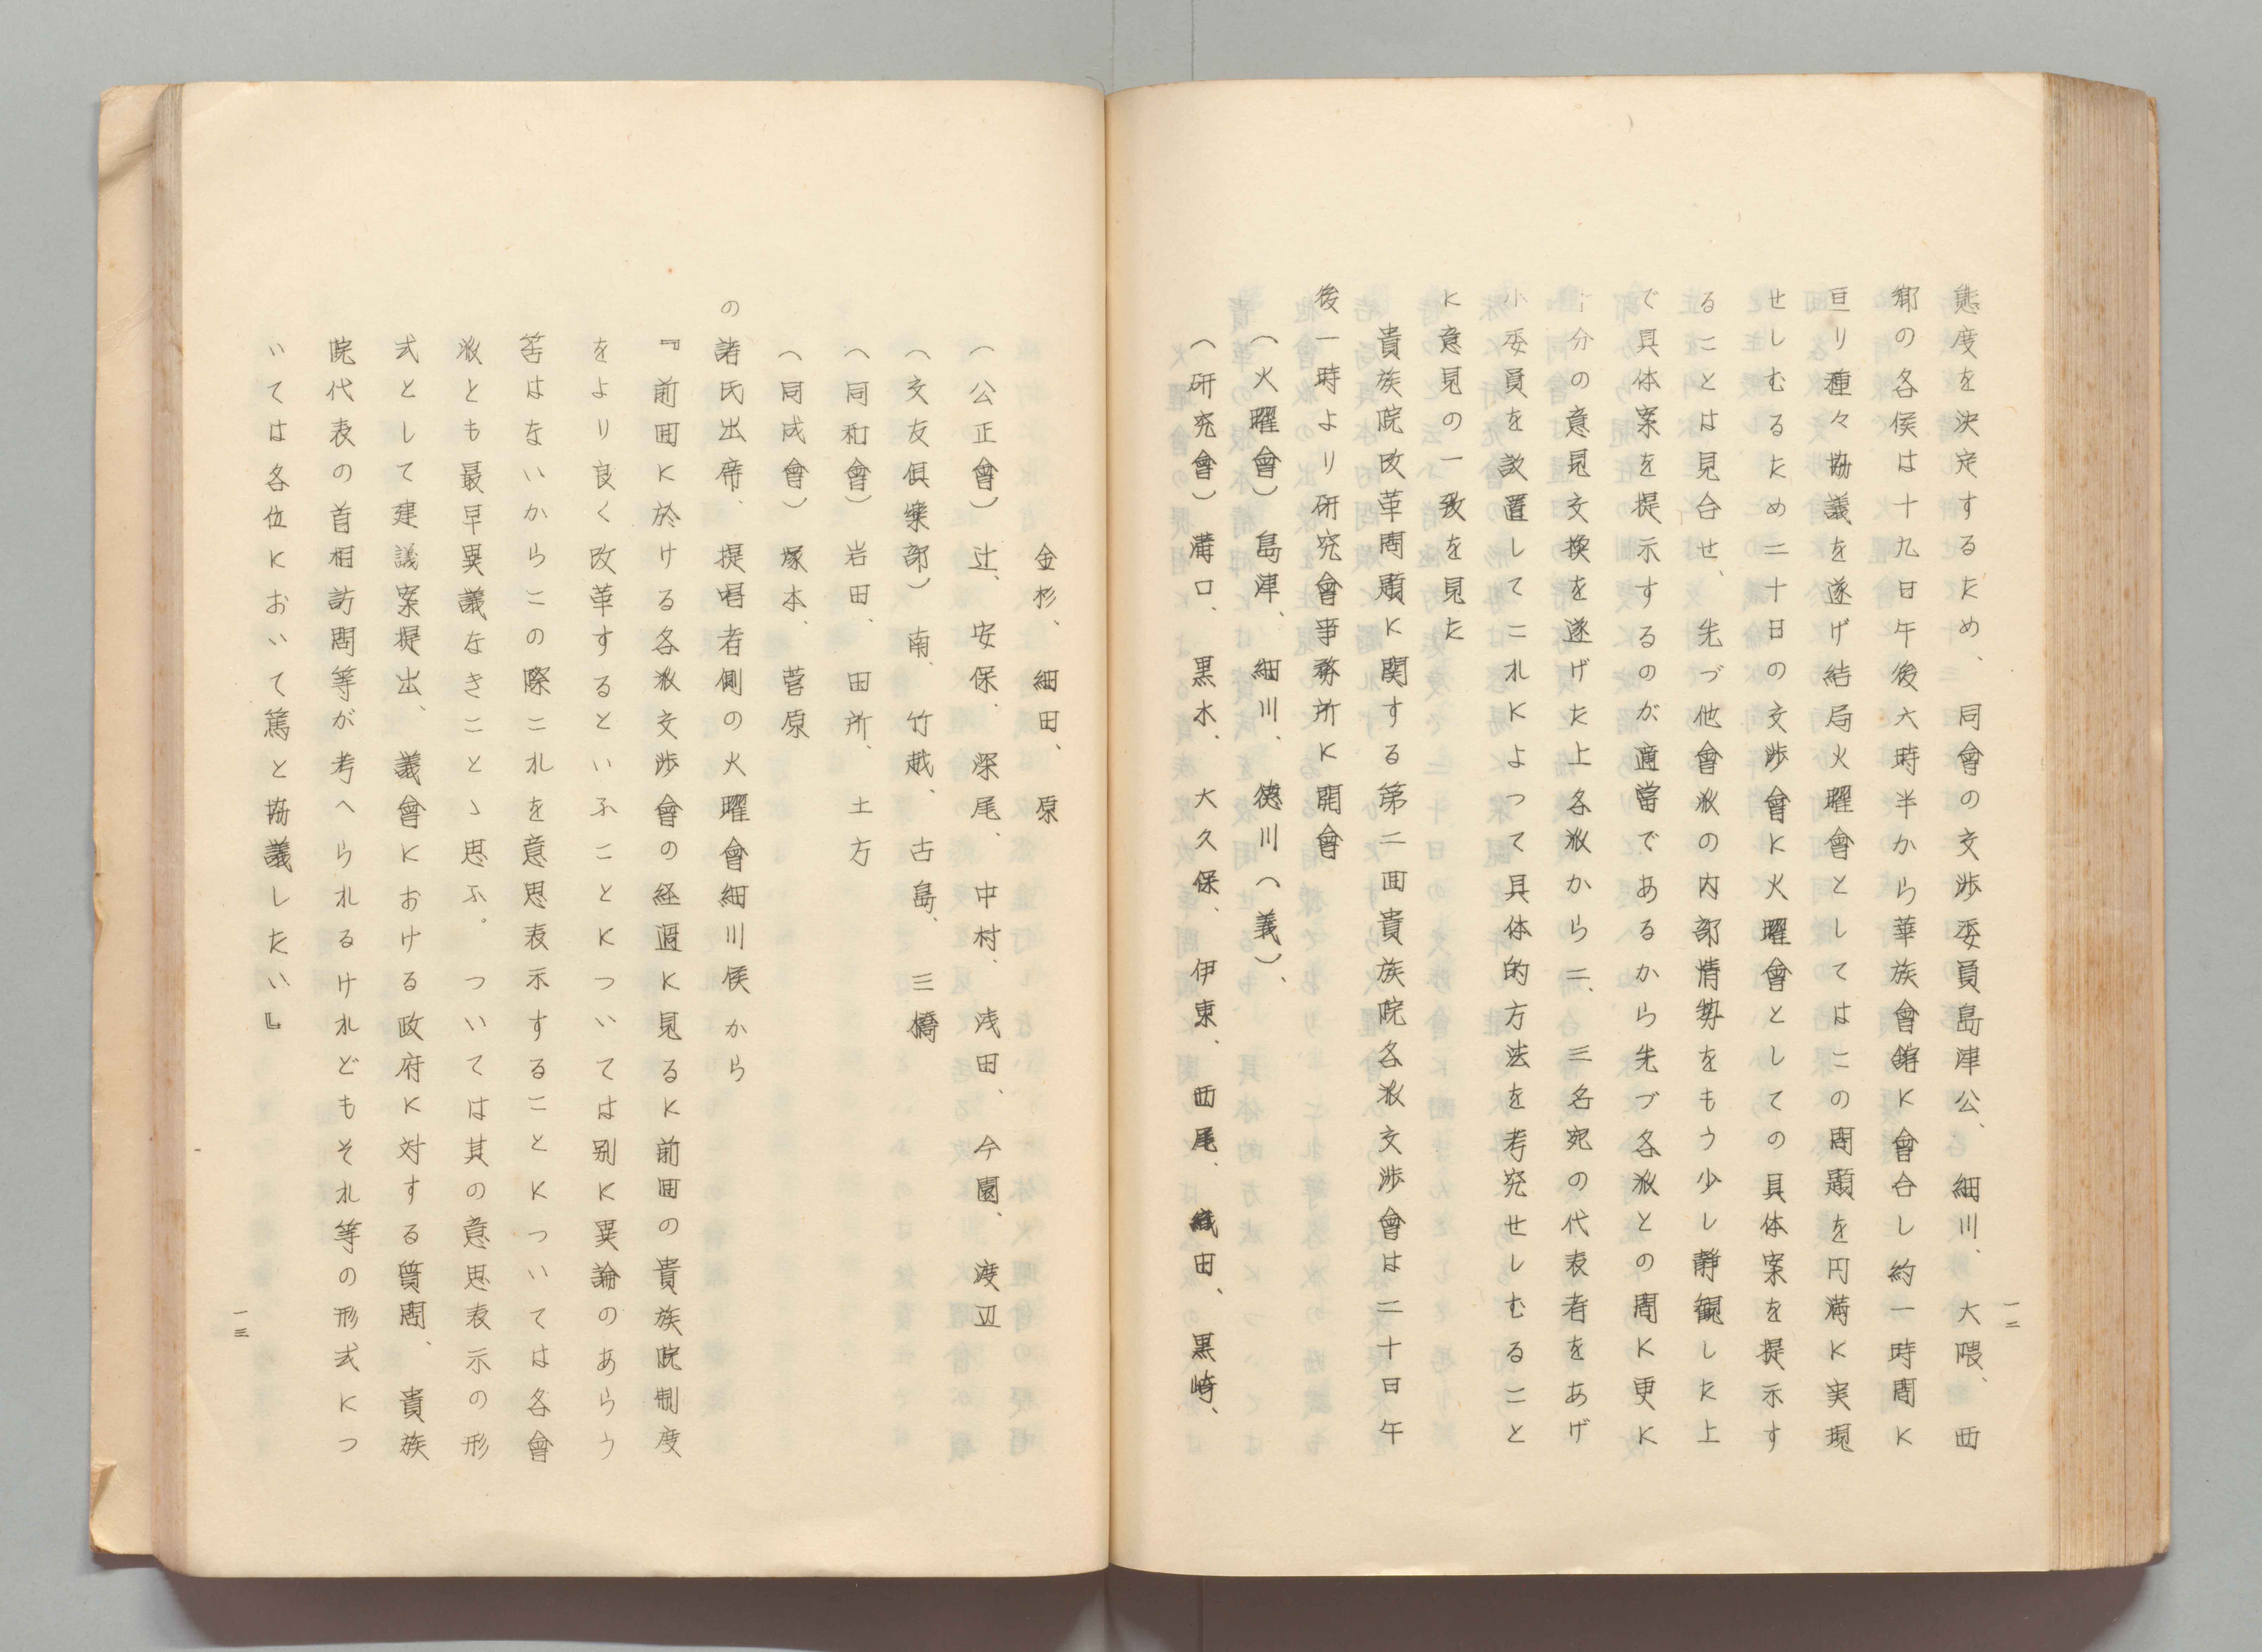 態度を決定するため、同會の交渉委員島津公、細川、大隈、西
郷の各侯は十九日午後六時半から華族會館に會合し約一時間に
亘り種々協議を遂げ結局火曜會としてはこの問題を円満に実現
せしむるため二十日の交渉會に火曜會としての具体案を提示す
ることは見合せ、先づ他會派の内部情勢をもう少し静観した上
で具体案を提示するのが適當であるから先づ各派との間に更に
十分の意見交換を遂げた上各派から二、三名宛の代表者をあげ
小委員を設置してこれによつて具体的方法を考究せしむること
に意見の一致を見た
貴族院改革問題に関する第二回貴族院各派交渉會は二十日午
後一時より研究會事務所に開會
（火曜會）島津、細川、徳川（義）、
（研究會）溝口、黒木、大久保、伊東、西尾、織田、黒崎、
一二
金杉、細田、原
（公正會）辻、安保、深尾、中村、浅田、今園、渡辺
（交友倶楽部）南、竹越、古島、三橋
（同和會）岩田、田所、土方
（同成會）塚本、菅原
の諸氏出席、提唱者側の火曜會細川侯から
『前回に於ける各派交渉會の経過に見るに前回の貴族院制度
をより良く改革するといふことについては別に異論のあらう
筈はないからこの際これを意思表示することについては各會
派とも最早異議なきことゝ思ふ。ついては其の意思表示の形
式として建議案提出、議會における政府に対する質問、貴族
院代表の首相訪問等が考へられるけれどもそれ等の形式につ
いては各位において篤と協議したい』
一三